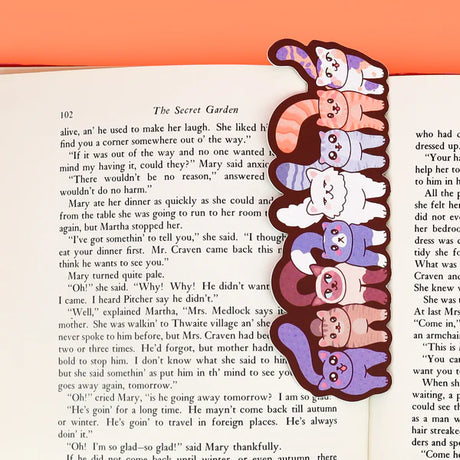 102 The Secret Garden
alive, an' he used to make her laugh. She liked hi
find you a corner somewhere out o' the way."
"If it was out of the way and no one wanted i
mind my having it, could they?" Mary said anxio
"There wouldn't be no reason," answered
wouldn't do no harm."
Mary ate her dinner as quickly as she could and
from the table she was going to run to her room t
again, but Martha stopped her.
"I've got somethin' to tell you," she said. "I though
eat your dinner first. Mr. Craven came back this
think he wants to see you."
Mary turned quite pale.
"Oh!" she said. "Why! Why! He didn't want
I came. I heard Pitcher say he didn't."
"Well," explained Martha, "Mrs. Medlock says it
mother. She was walkin' to Thwaite village an' she
never spoke to him before, but Mrs. Craven had been
two or three times. He'd forgot, but mother hadn
bold to stop him. I don't know what she said to hi
but she said somethin' as put him in th' mind to see you
goes away again, tomorrow."
"Oh!" cried Mary, "is he going away tomorrow? I am so glad
"He's goin' for a long time. He mayn't come back till autumn
or winter. He's goin' to travel in foreign places. He's always
doin' it."
"Oh! I'm so glad—so glad!" said Mary thankfully.
If he did not come back until winter, or even autumn, there
who had d
dressed up.
"Your
help her to
to him in h
She felt
did not eve
her
dress was c
tidy she
What was
Craven and
She knew
She was
At last Mrs
"Come in,"
an armchair
"This is
"You
want you
When she
waiting, a
could see th
as a man
hair streaked
Come